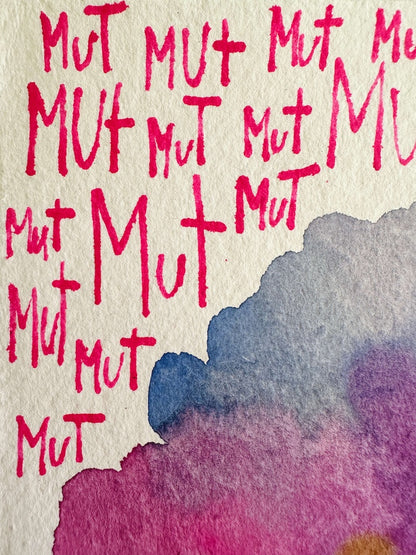 MuT MUt Mut Mu
MUt MuT Mut MU
Mut Mut MuT
Mut MuT
MuT